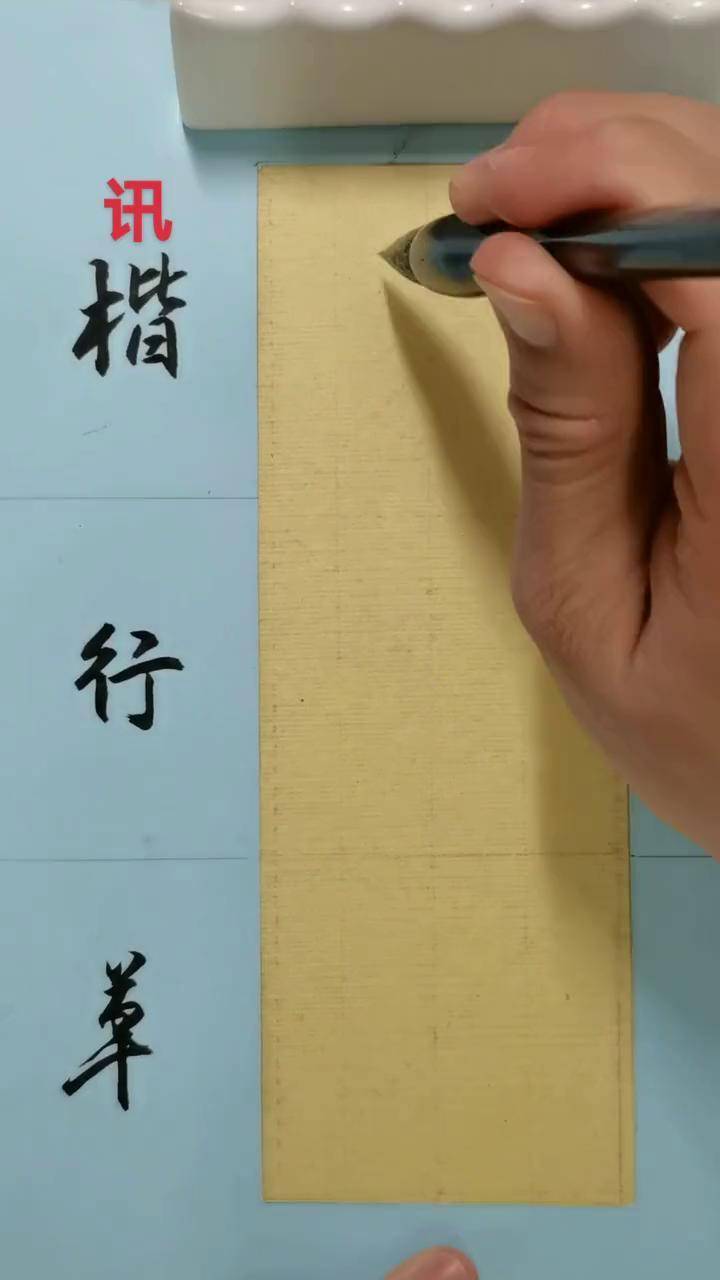 讯
楷
行
草